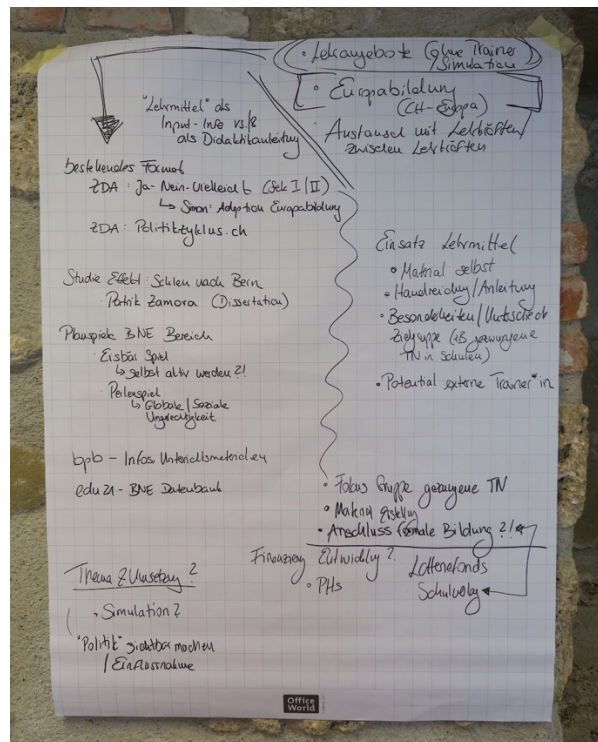 • Lehrangebote (ohne Trainer
/Simulation)
• Europabildung
(CH-Europa)
Austausch mit Lehrkräften/
zwischen Lehrkräften
"Lehrmittel" als
Input-Info vs./&
als Didaktikanleitung
bestehendes Format
ZDA: Ja-Nein-Vielleicht (Sek I/II)
↳ Simon: Adaption Europabildung
ZDA: Politikzyklus.ch
Studie Effekt: Schulen nach Bern
Patrik Zamora (Dissertation)
Planspiele BNE Bereich
Eisbär Spiel
↳ selbst aktiv werden?!
Perlenspiel
↳ Globale/Soziale
Ungerechtigkeit
bpb – Infos, Unterrichtsmaterialien
edu21 – BNE Datenbank
Einsatz Lehrmittel
• Material selbst
• Handreichung/Anleitung
• Besonderheiten/Unterschied
Zielgruppe (zB gezwungene
TN in Schulen)
• Potential externe Trainer*in
• Fokus Gruppe gezwungene TN
• Material Erstellung
• Anschluss formale Bildung?!
Finanzierung Entwicklung?
• PHs
Lotteriefonds
Schulverlag
Thema & Umsetzung?
Simulation?
"Politik" sichtbar machen
/Einflussnahme
Office
World